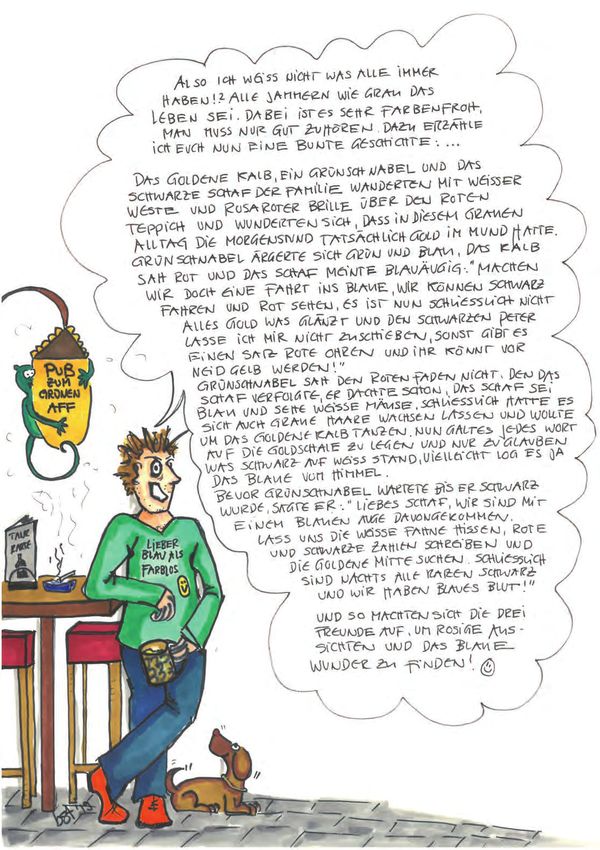 ALSO ICH WEISS NICHT WAS ALLE IMMER
HABEN!? ALLE JAMMERN WIE GRAU DAS
LEBEN SEI. DABEI IST ES SEHR FARBENFROH,
MAN MUSS NUR GUT ZUHÖREN. DAZU ERZÄHLE
ICH EUCH NUN EINE BUNTE GESCHICHTE: ...
DAS GOLDENE KALB, EIN GRÜNSCHNABEL UND DAS
SCHWARZE SCHAF DER FAMILIE WANDERTEN MIT WEISSER
WESTE UND ROSAROTER BRILLE ÜBER DEN ROTEN
TEPPICH UND WUNDERTEN SICH, DASS IN DIESEM GRAUEN
ALLTAG DIE MORGENSTUND TATSÄCHLICH GOLD IM MUND HATTE.
GRÜNSCHNABEL ÄRGERTE SICH GRÜN UND BLAU, DAS KALB
SAH ROT UND DAS SCHAF MEINTE BLAUÄUGIG: "MACHEN
WIR DOCH EINE FAHRT INS BLAUE, WIR KÖNNEN SCHWARZ
FAHREN UND ROT SEHEN, ES IST NUN SCHLIESSLICH NICHT
ALLES GOLD WAS GLÄNZT UND DEN SCHWARZEN PETER
LASSE ICH MIR NICHT ZUSCHIEBEN, SONST GIBT ES
EINEN SATZ ROTE OHREN UND IHR KÖNNT VOR
NEID GELB WERDEN!"
GRÜNSCHNABEL SAH DEN ROTEN FADEN NICHT. DEN DAS
SCHAF VERFOLGTE, ER DACHTE SCHON, DAS SCHAF SEI
BLAU UND SEHE WEISSE MÄUSE, SCHLIESSLICH HATTE ES
SICH AUCH GRAUE HAARE WACHSEN LASSEN UND WOLLTE
UM DAS GOLDENE KALB TANZEN, NUN GALT ES JEDES WORT
AUF DIE GOLDSCHALE ZU LEGEN UND NUR ZU GLAUBEN
WAS SCHWARZ AUF WEISS STAND, VIELLEICHT LOG ES JA
DAS BLAUE VOM HIMMEL.
BEVOR GRÜNSCHNABEL WARTETE BIS ER SCHWARZ
WURDE, SAGTE ER: "LIEBES SCHAF, WIR SIND MIT
EINEM BLAUEN AUGE DAVONGEKOMMEN.
LASS UNS DIE WEISSE FAHNE HISSEN, ROTE
UND SCHWARZE ZAHLEN SCHREIBEN UND
DIE GOLDENE MITTE SUCHEN. SCHLIESSLICH
SIND NACHTS ALLE KATZEN SCHWARZ
UND WIR HABEN BLAUES BLUT!"
UND SO MACHTEN SICH DIE DREI
FREUNDE AUF, UM ROSIGE AUS-
SICHTEN UND DAS BLAUE
WUNDER ZU FINDEN!
PUB
ZUM
GRÜNEN
AFF
LIEBER
BLAU ALS
FARBLOS